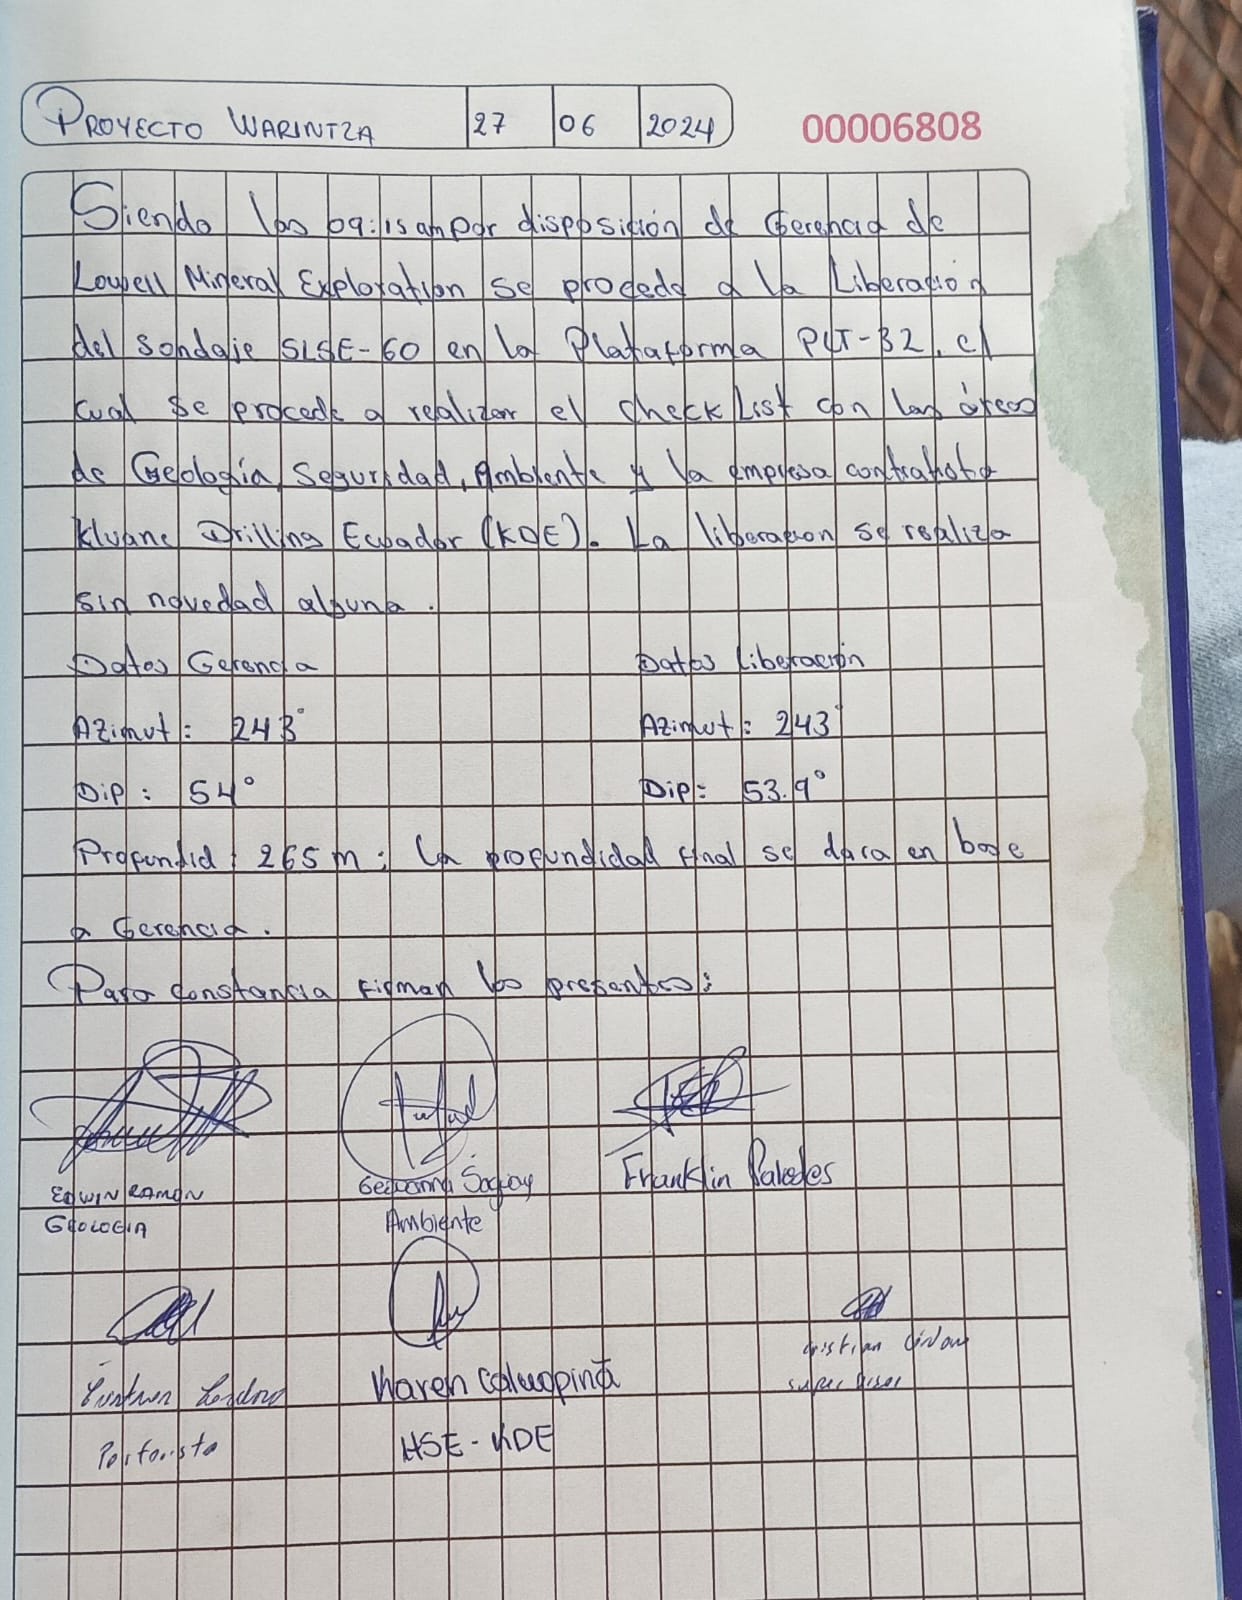 PROYECTO WARINTZA 27 06 2024 00006808
Siendo las 09:15 am por disposición de Gerencia de
Lowell Mineral Exploration se procede a la Liberación
del Sondaje SLSE-60 en la Plataforma PLT-B2, el
cual se procede a realizar el check List con las áreas
de Geología, Seguridad, Ambiente y la empresa contratista
Kluane Drilling Ecuador (KDE). La liberación se realiza
sin novedad alguna.
Datos Gerencia Datos Liberación
Azimut: 243° Azimut: 243°
Dip: 54° Dip: 53.9°
Profundid: 265 m; La profundidad final se dara en base
a Gerencia.
Para constancia firman los presentes:
EDWIN RAMON Geovanna Franklin Paredes
GEOLOGIA Ambiente
Karen Caluopiná Cristian
Perforista HSE-KDE supervisor